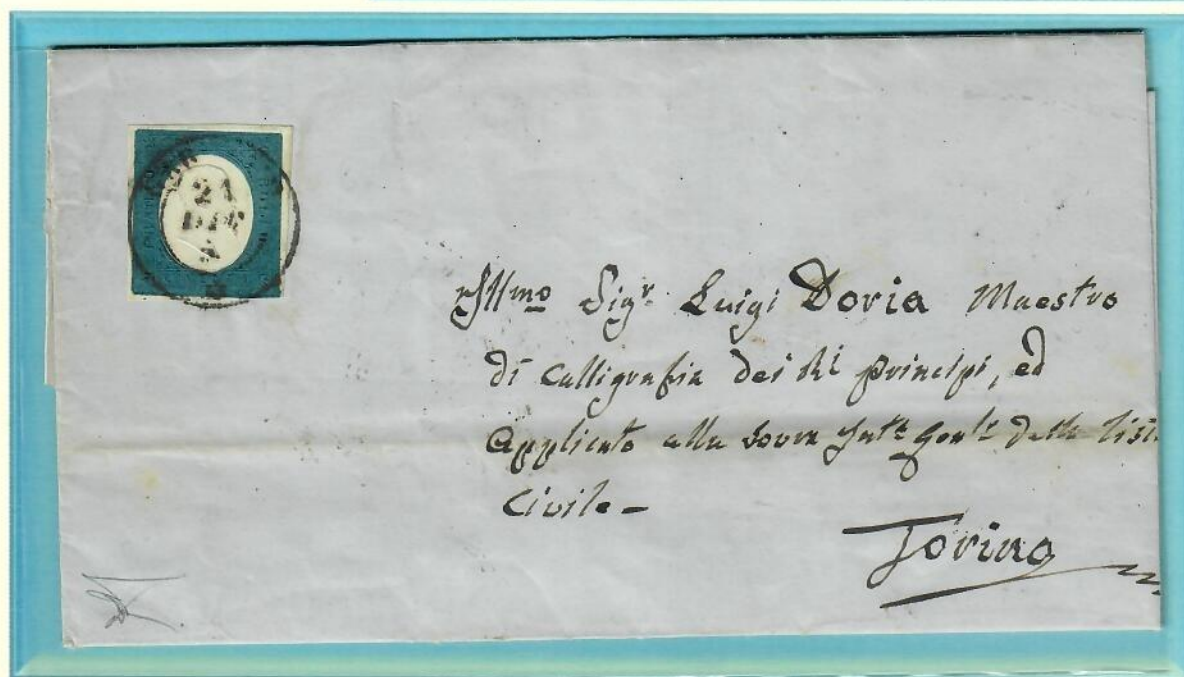 21
DIC
Illmo Sigr. Luigi Doria Maestro
di Calligrafia dei Rl Principi, ed
Applicato alla Sovra Intza Genle della
Civile -
Torino